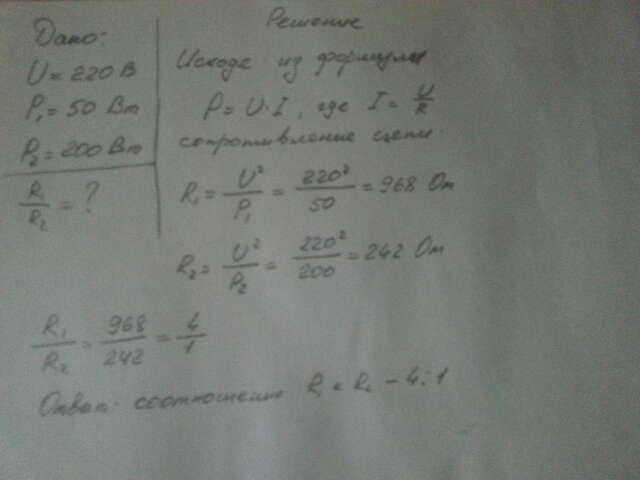 Дано:
U = 220 В
P₁ = 50 Вт
P₂ = 200 Вт
R₁/R₂ = ?
Решение
Исходя из формулы
P = U·I, где I = U/R
сопротивление цепи:
R₁ = U²/P₁ = 220²/50 = 968 Ом
R₂ = U²/P₂ = 220²/200 = 242 Ом
R₁/R₂ = 968/242 = 4/1
Ответ: соотношение R₁ к R₂ – 4:1